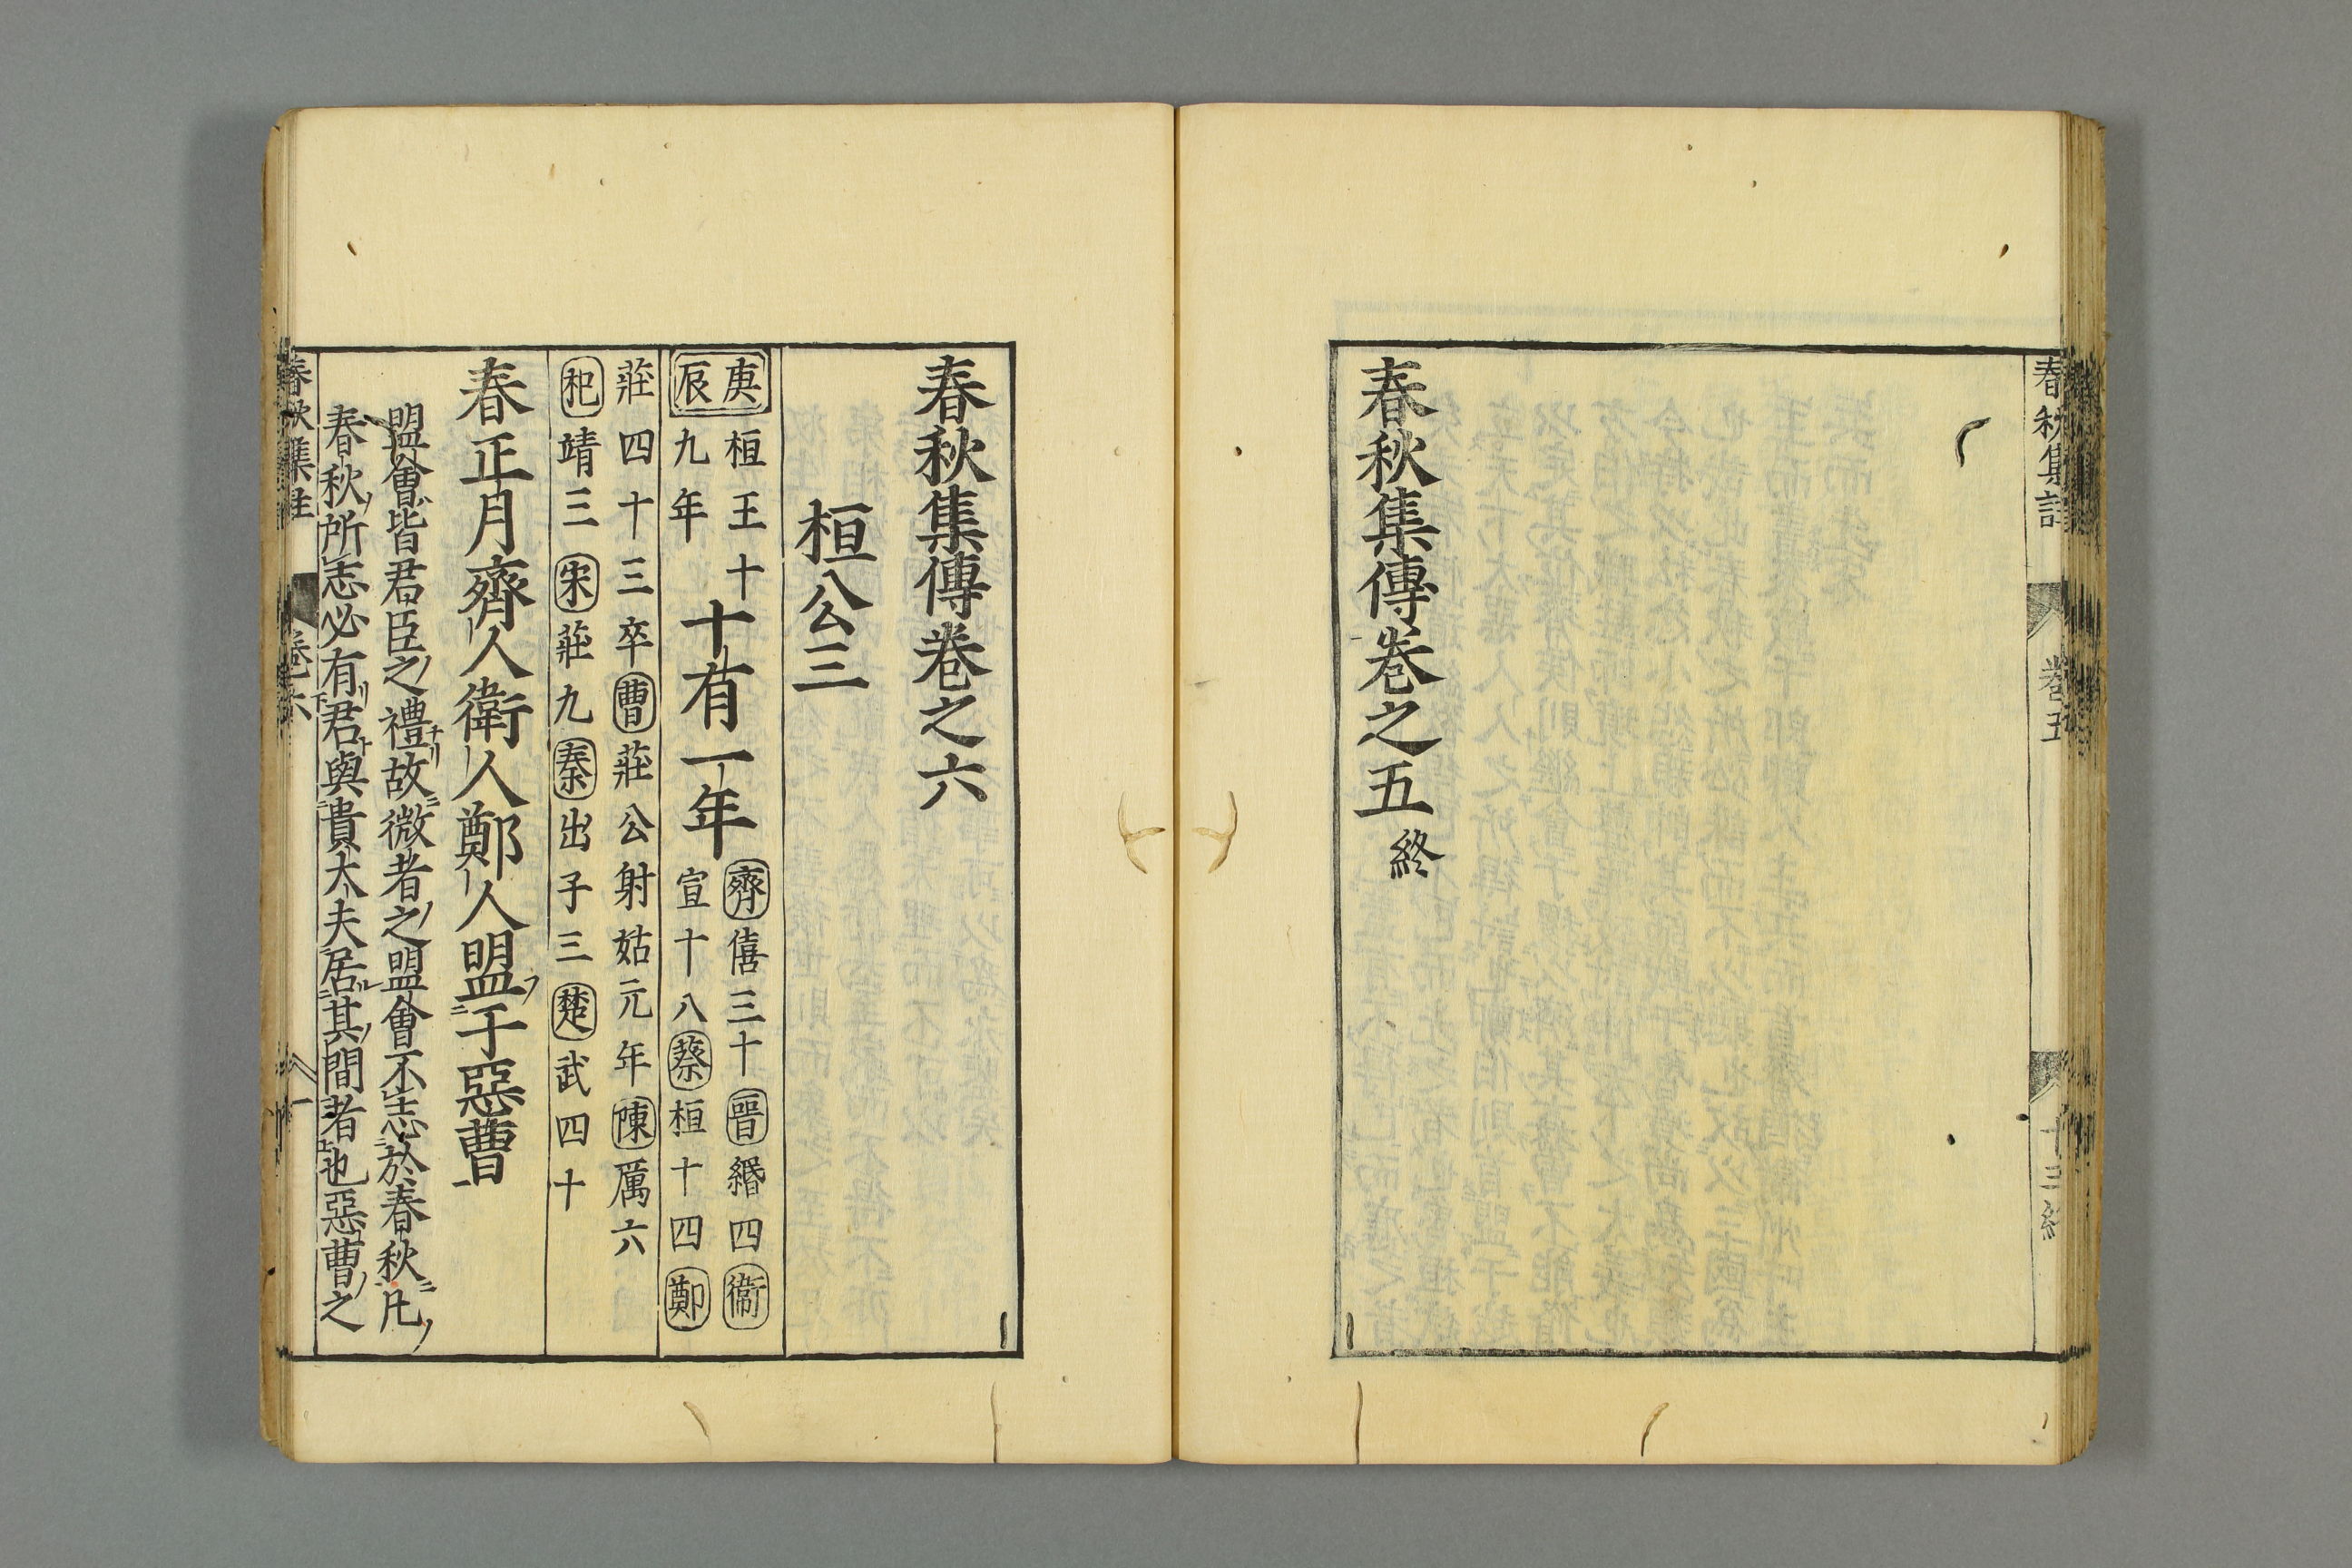 春秋集註
卷五
十三終
春秋集傳卷之五終
春秋集傳卷之六
桓公三
庚辰
桓王十
九年
十有一年
齊僖三十晉緡四衞
宣十八蔡桓十四鄭
莊四十三卒曹莊公射姑元年陳厲六
杞靖三宋莊九秦出子三楚武四十
春正月齊人衛人鄭人盟于惡曹
盟會皆君臣之禮故微者之盟會不志於春秋凡
春秋所志必有君與貴大夫居其間者也惡曹之
春秋集註
卷六
一